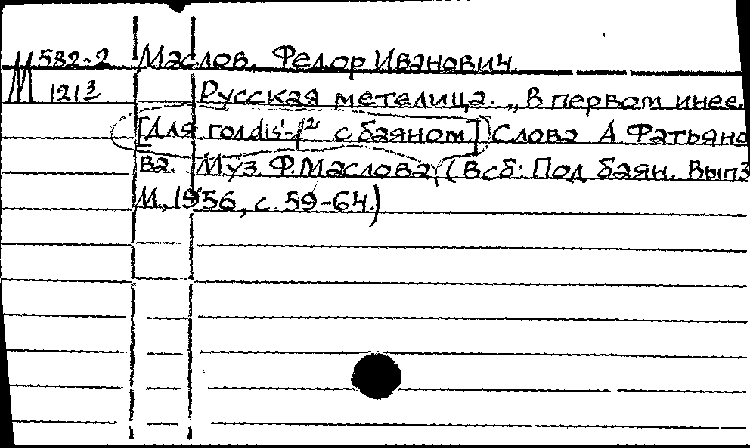 М 582-2 Маслов, Федор Иванович.
1213 Русская метелица. „В первом инее.
[Для гол. dis'-f² с баяном] Слова А Фатьяно
ва. Муз. Ф. Маслова, (В сб: Под баян. Вып3
М., 1956, с. 59-64.)